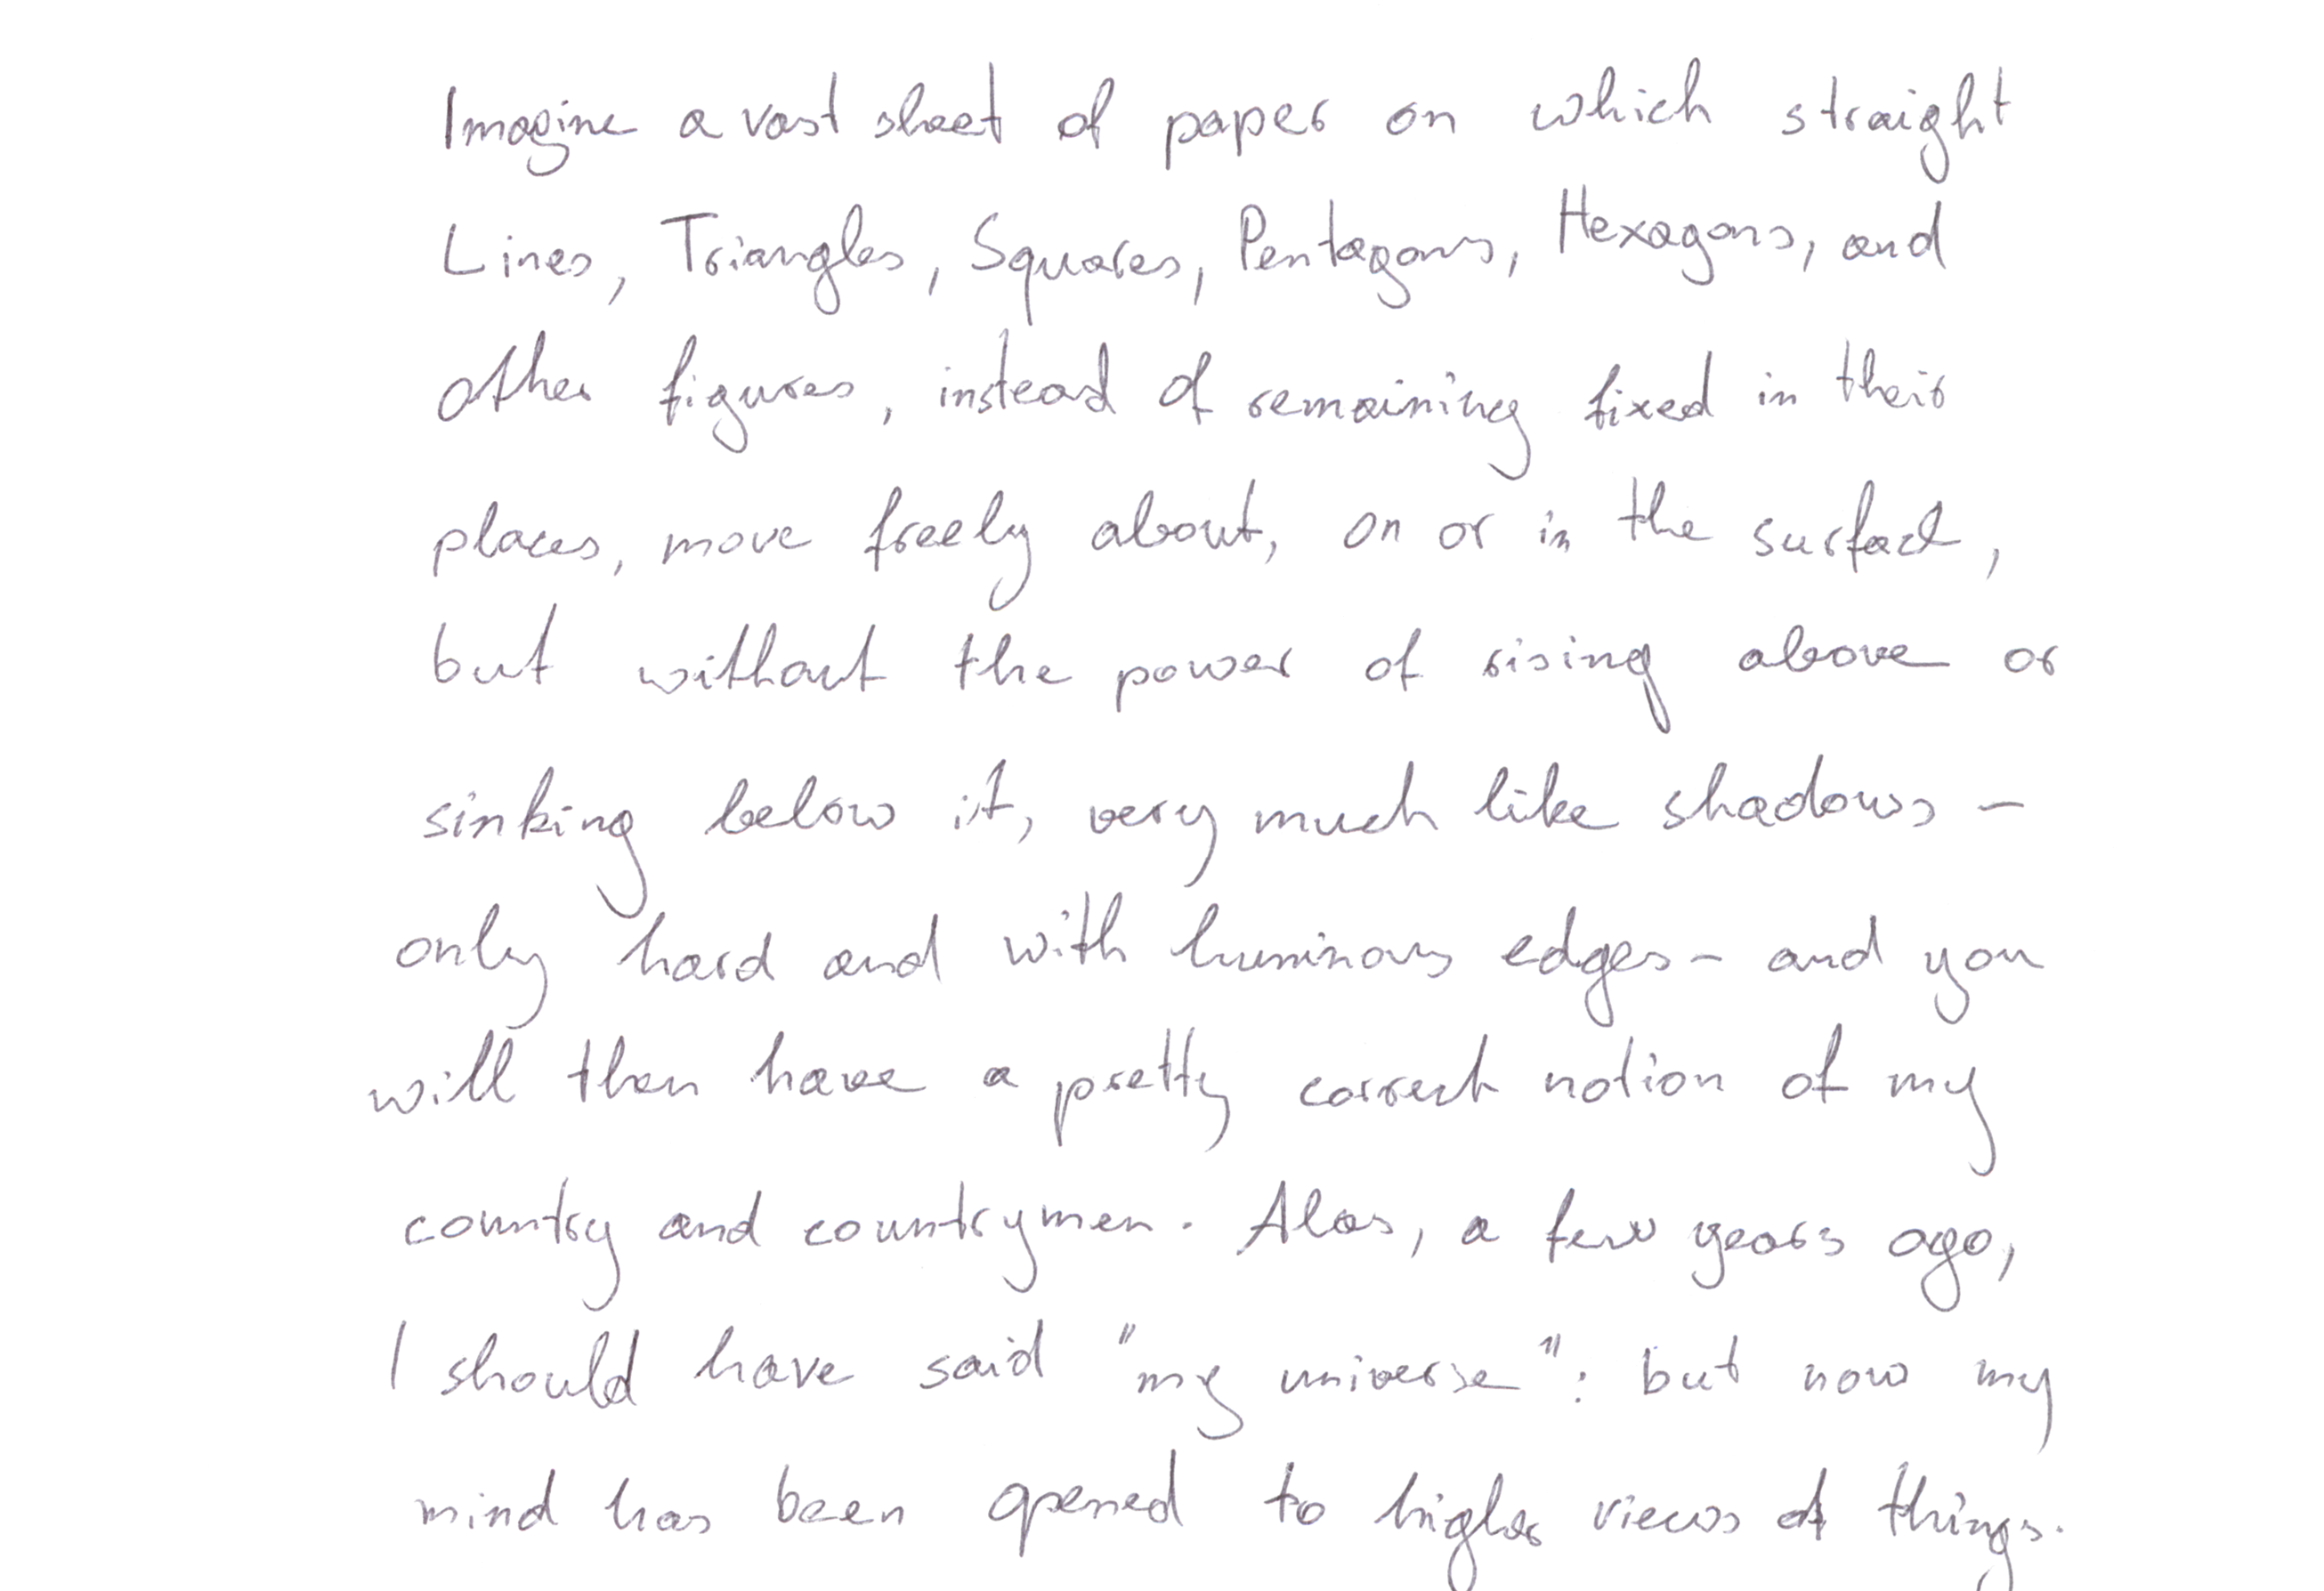 Imagine a vast sheet of paper on which straight
Lines, Triangles, Squares, Pentagons, Hexagons, and
other figures, instead of remaining fixed in their
places, move freely about, on or in the surface,
but without the power of rising above or
sinking below it, very much like shadows -
only hard and with luminous edges - and you
will then have a pretty correct notion of my
country and countrymen. Alas, a few years ago,
I should have said "my universe": but now my
mind has been opened to higher views of things.